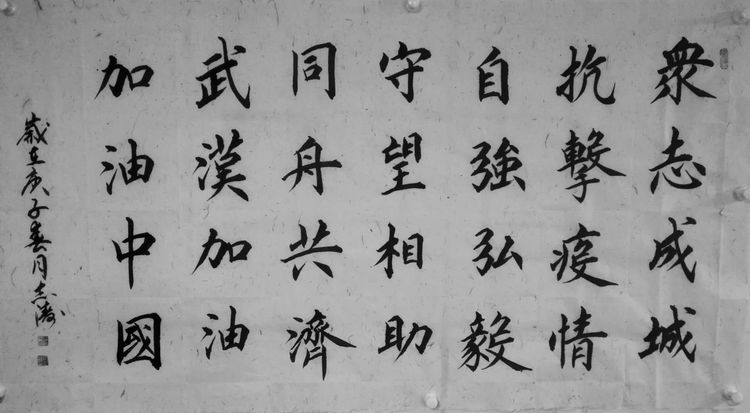 衆志成城
抗擊疫情
自強弘毅
守望相助
同舟共濟
武漢加油
加油中國
歲在庚子春月志濤